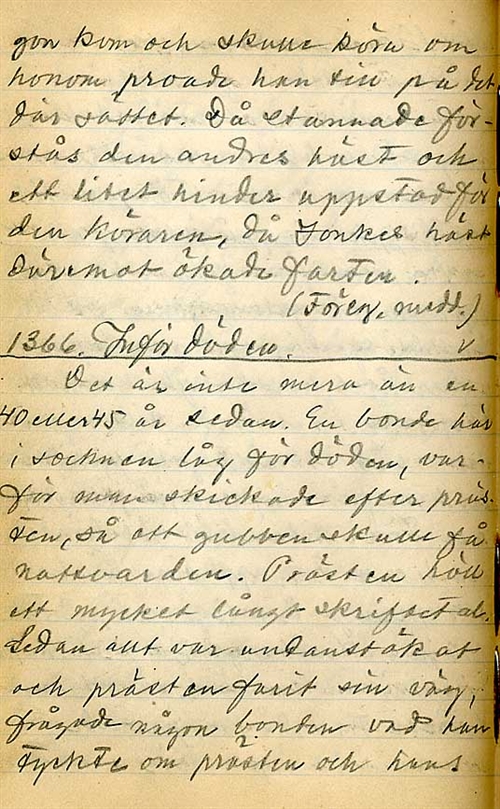 gon kom och skulle köra om
honom, proade han till på det
där sättet. Då stannade för-
stås den andres häst och
ett litet hinder uppstod för
den köraren, då Jonkes häst
däremot ökade farten.
(Föreg. medd.)
1366. Inför döden. v
Det är inte mera än en
40 eller 45 år sedan. En bonde här
i socknen låg för döden, var-
för man skickade efter präs-
ten, så att gubben skulle få
nattvarden. Prästen höll
ett mycket långt skriftetal.
Sedan allt var undanstökat
och prästen farit sin väg,
frågade någon bonden vad han
tyckte om prästen och hans